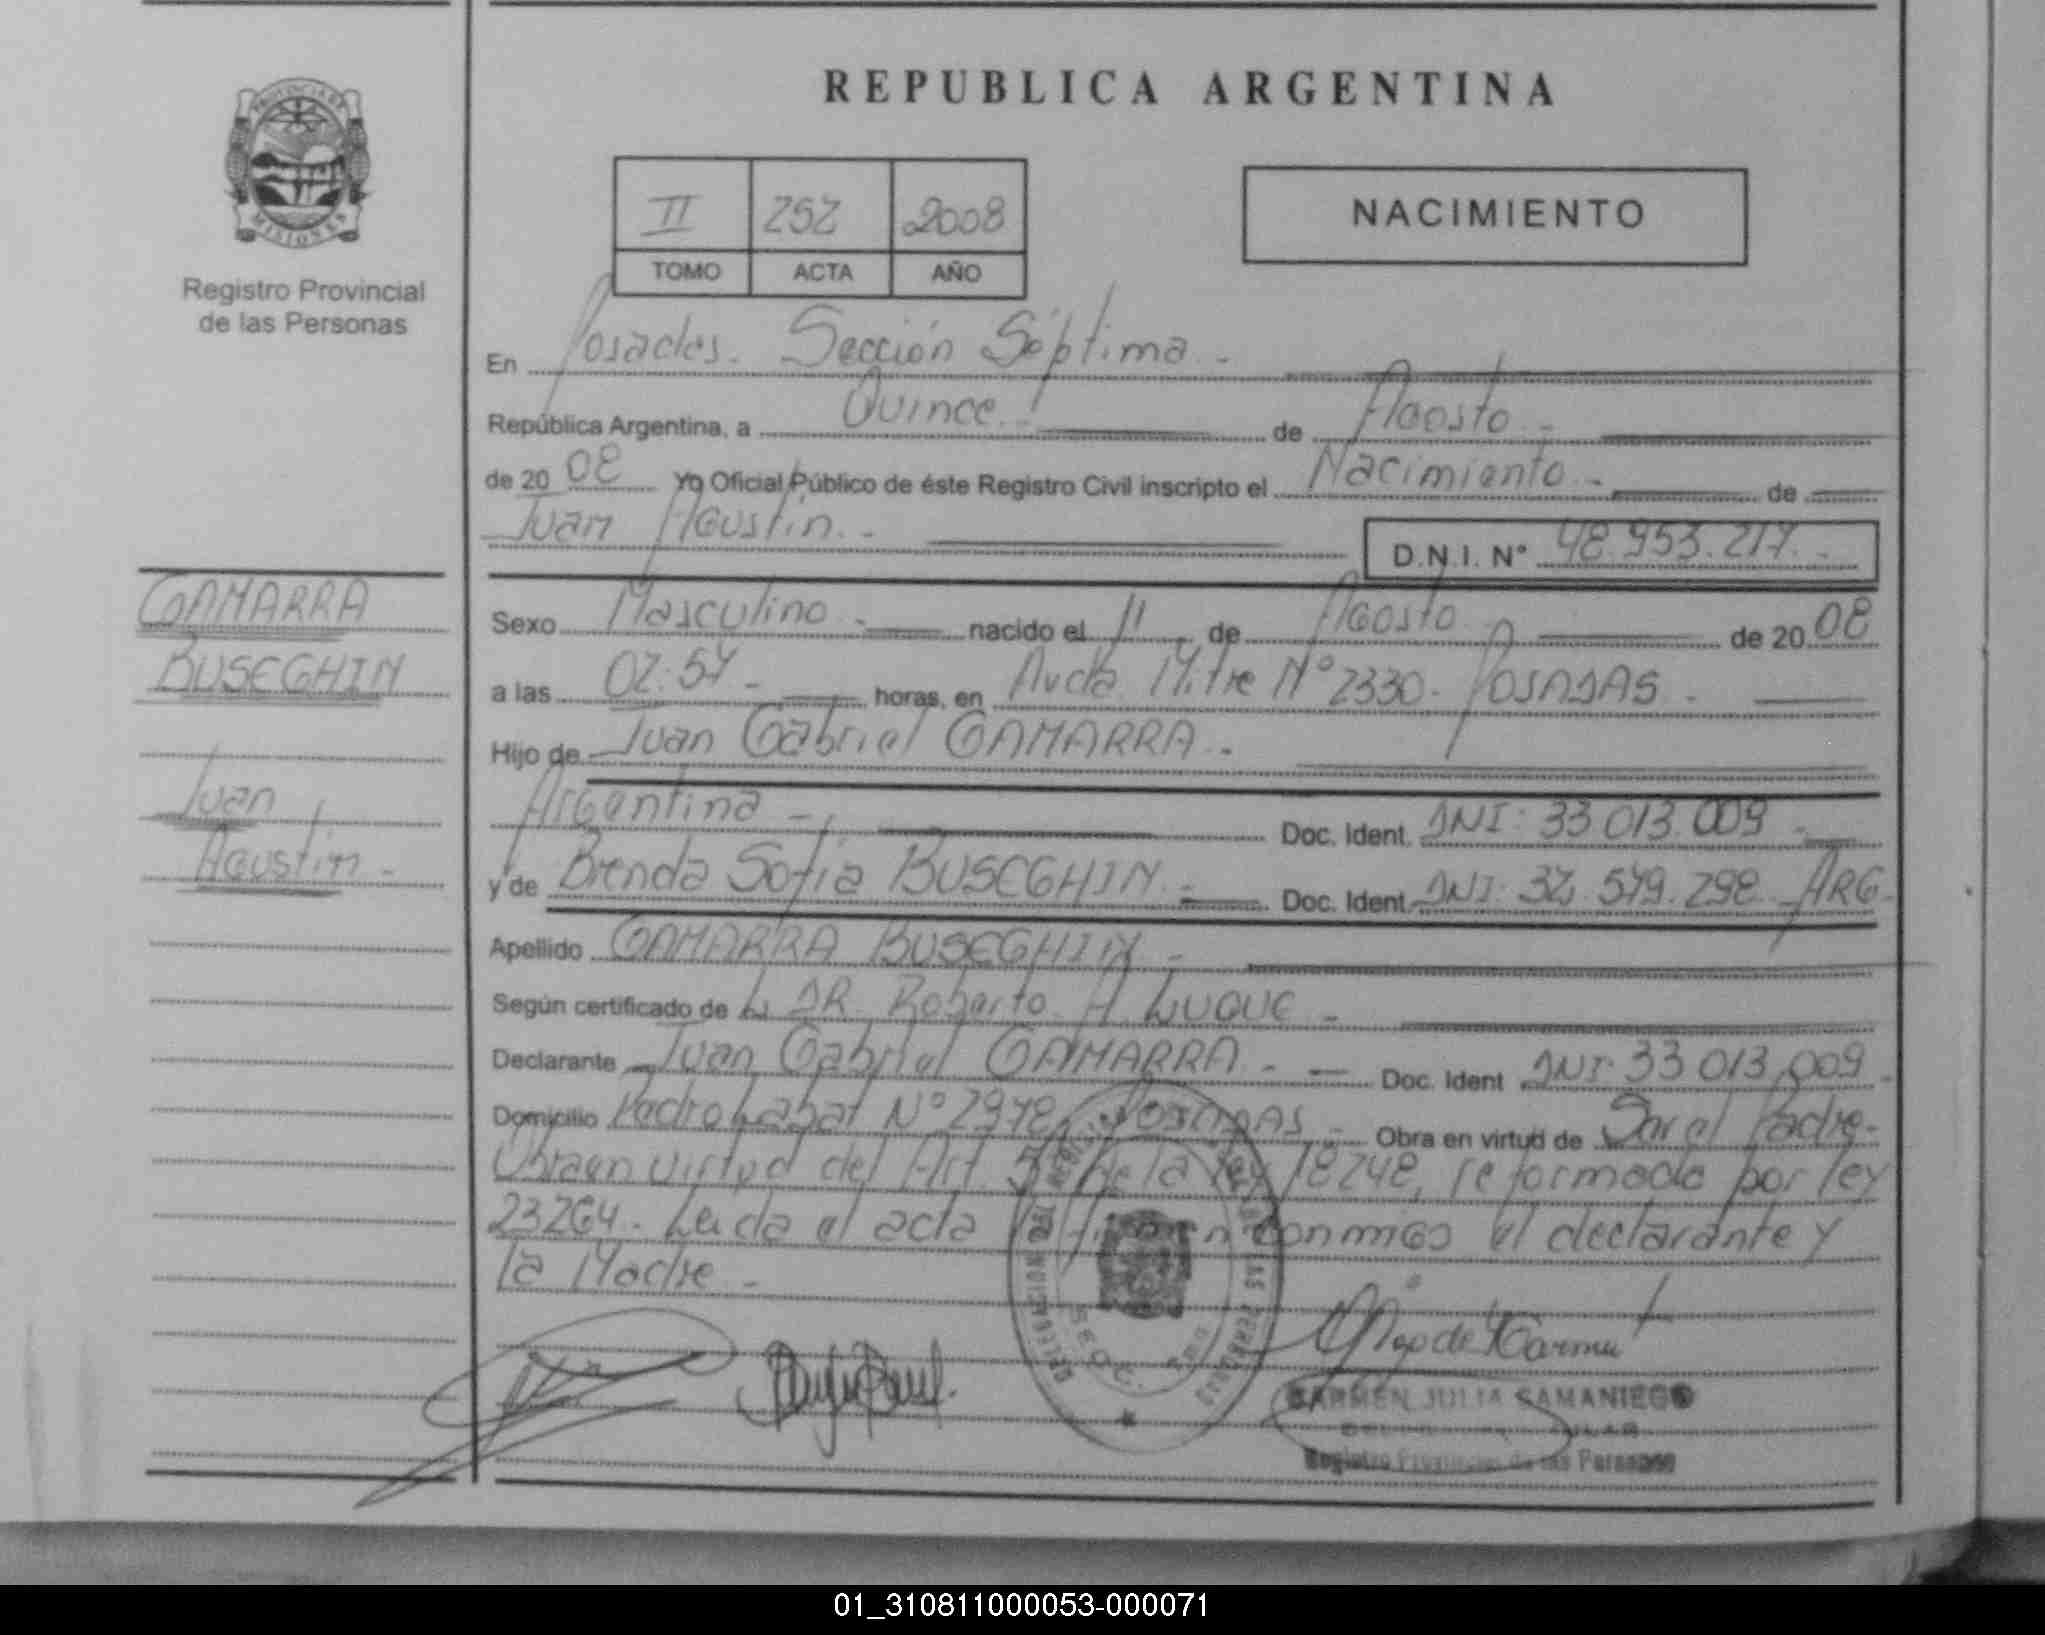 REPUBLICA ARGENTINA
PROVINCIA DE
MISIONES
Registro Provincial
de las Personas
II 252 2008
TOMO ACTA AÑO
NACIMIENTO
En Posadas. Sección Séptima.-
República Argentina, a Quince.- de Agosto.-
de 20 08 Yo Oficial Público de éste Registro Civil inscripto el Nacimiento.- de
Juan Agustín.-
D.N.I. N° 48.953.217.-
GAMARRA
BUSEGHIN
Juan
Agustín.-
Sexo Masculino.- nacido el 11 de Agosto de 20 08
a las 02:57.- horas, en Avda. Mitre N° 2330. POSADAS.-
Hijo de Juan Gabriel GAMARRA.-
Argentina.- Doc. Ident. DNI: 33.013.009.-
y de Brenda Sofía BUSEGHIN.- Doc. Ident. DNI: 579.298 ARG.
Apellido GAMARRA BUSEGHIN.-
Según certificado de DR. Roberto H. LUQUE.-
Declarante Juan Gabriel GAMARRA.- Doc. Ident DNI: 33.013.009.-
Domicilio Pedro Labat N° POSADAS.- Obra en virtud de Ser el Padre.-
Obra en virtud del Art. 5 de la ley 18248, reformado por ley
23264. Leida el acta la firman conmigo el declarante y
la Madre.-
CARMEN JULIA SAMANIEGO
Registro Provincial de las Personas
01_310811000053-000071